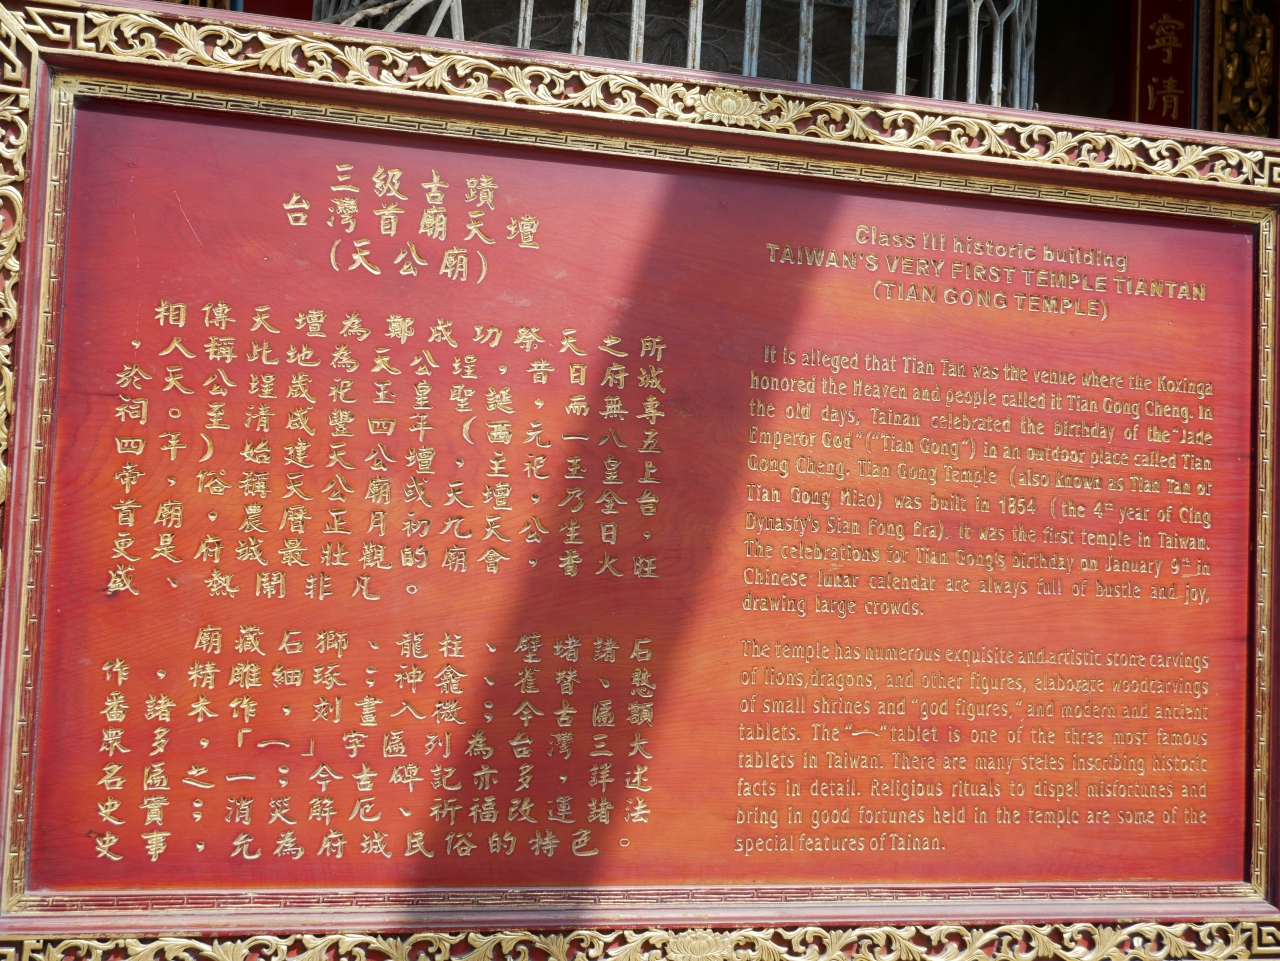 三級古蹟
台灣首廟天壇
(天公廟)
相傳天壇為鄭成功祭天之所
，人稱此地為天公埕，昔日府城
於天公埕歲祀玉皇聖誕，而無專
祠。至清咸豐四年(西元一八五
四年)始建天公壇，主祀玉皇上
帝，俗稱天公廟或天壇，乃全台
首廟，農曆正月初九天公生日，
更是府城最壯觀的廟會，香火旺
盛、熱鬧非凡。
廟藏石獅、龍柱、壁堵諸石
作，精雕細琢；神龕、雀替、憨
番諸木作，刻畫入微；今古匾額
眾多，「一」字匾列為台灣三大
名匾之一；今古碑記亦多，詳述
史實；消災解厄、祈福改運諸法
史事，允為府城民俗的特色。
Class III historic building
TAIWAN'S VERY FIRST TEMPLE TIANTAN
(TIAN GONG TEMPLE)
It is alleged that Tian Tan was the venue where the Koxinga
honored the Heaven and people called it Tian Gong Cheng. In
the old days, Tainan celebrated the birthday of the "Jade
Emperor God" ("Tian Gong") in an outdoor place called Tian
Gong Cheng. Tian Gong Temple (also known as Tian Tan or
Tian Gong Miao) was built in 1854 (the 4th year of Cing
Dynasty's Sian Fong Era). It was the first temple in Taiwan.
The celebrations for Tian Gong's birthday on January 9th in
Chinese lunar calendar are always full of bustle and joy,
drawing large crowds.
The temple has numerous exquisite and artistic stone carvings
of lions, dragons, and other figures, elaborate woodcarvings
of small shrines and "god figures," and modern and ancient
tablets. The "一" tablet is one of the three most famous
tablets in Taiwan. There are many steles inscribing historic
facts in detail. Religious rituals to dispel misfortunes and
bring in good fortunes held in the temple are some of the
special features of Tainan.
寧清